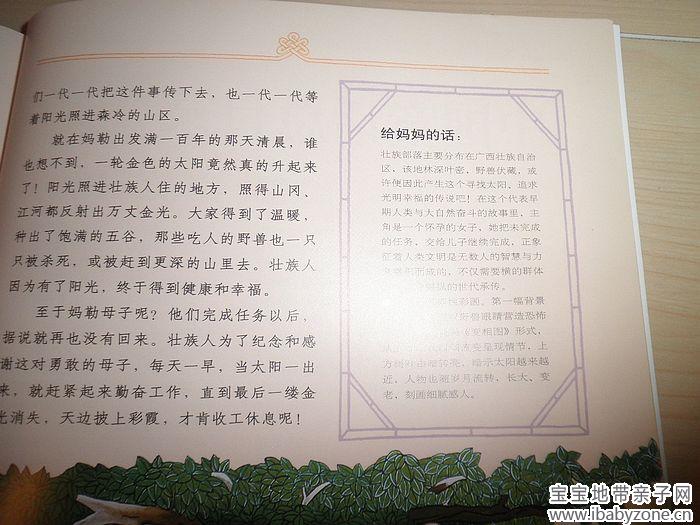 们一代一代把这件事传下去，也一代一代等
着阳光照进森冷的山区。
就在妈勒出发满一百年的那天清晨，谁
也想不到，一轮金色的太阳竟然真的升起来
了！阳光照进壮族人住的地方，照得山冈、
江河都反射出万丈金光。大家得到了温暖，
种出了饱满的五谷，那些吃人的野兽也一只
只被杀死，或被赶到更深的山里去。壮族人
因为有了阳光，终于得到健康和幸福。
至于妈勒母子呢？他们完成任务以后，
据说就再也没有回来。壮族人为了纪念和感
谢这对勇敢的母子，每天一早，当太阳一出
来，就赶紧起来勤奋工作，直到最后一缕金
光消失，天边披上彩霞，才肯收工休息呢！
给妈妈的话：
壮族部落主要分布在广西壮族自治
区，该地林深叶密，野兽伏藏，或
许便因此产生这个寻找太阳、追求
光明幸福的传说吧！在这个代表早
期人类与大自然奋斗的故事里，主
角是一个怀孕的女子，她把未完成
的任务，交给儿子继续完成，正象
征着人类文明是无数人的智慧与力
而成的，不仅需要横的群体
的世代承传。
彩图。第一幅背景
兽眼睛营造恐怖
《变相图》形式，
变呈现情节，上
方 转亮，暗示太阳越来越
近，人物也随岁月流转，长大、变
老，刻画细腻感人。
宝宝地带亲子网
www.ibabyzone.cn